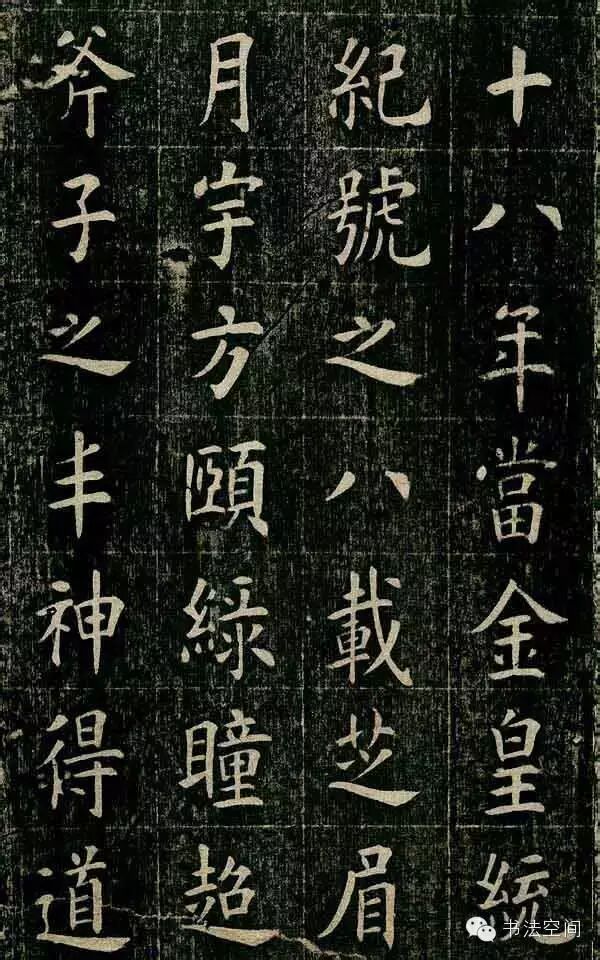 十八年當金皇統
紀號之八載芝眉
月宇方頤綠瞳超
斧子之丰神得道
书法空间